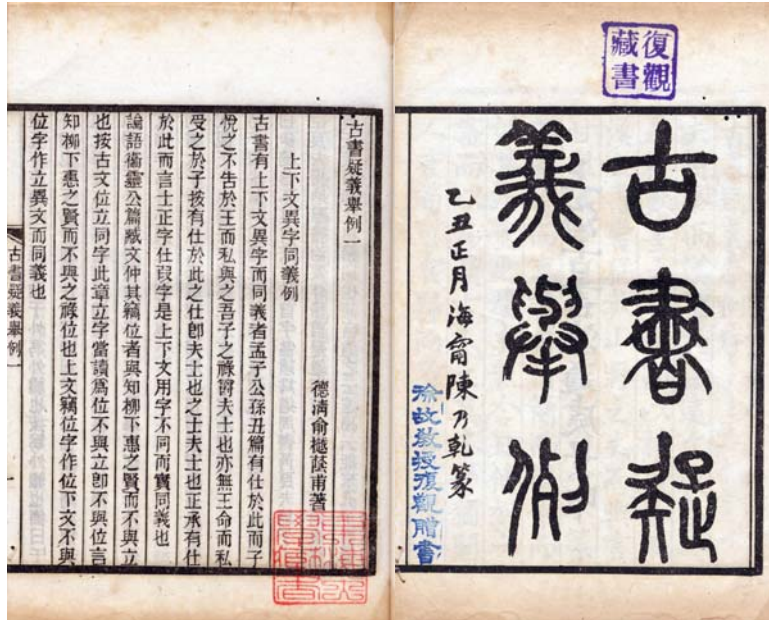 復觀
藏書
古書疑
義舉例
乙丑正月海甯陳乃乾篆
徐故敎授復觀贈書
古書疑義舉例一
德淸俞樾蔭甫著
上下文異字同義例
古書有上下文異字而同義者孟子公孫丑篇有仕於此而子
悅之不吿於王而私與之吾子之祿爵夫士也亦無王命而私
受之於子按有仕於此之仕卽夫士也之士夫士也正承有仕
於此而言士正字仕叚字是上下文用字不同而實同義也
論語衞靈公篇臧文仲其竊位者與知柳下惠之賢而不與立
也按古文位立同字此章立字當讀爲位不與立卽不與位言
知柳下惠之賢而不與之祿位也上文竊位字作位下文不與
位字作立異文而同義也
古書疑義舉例一
一